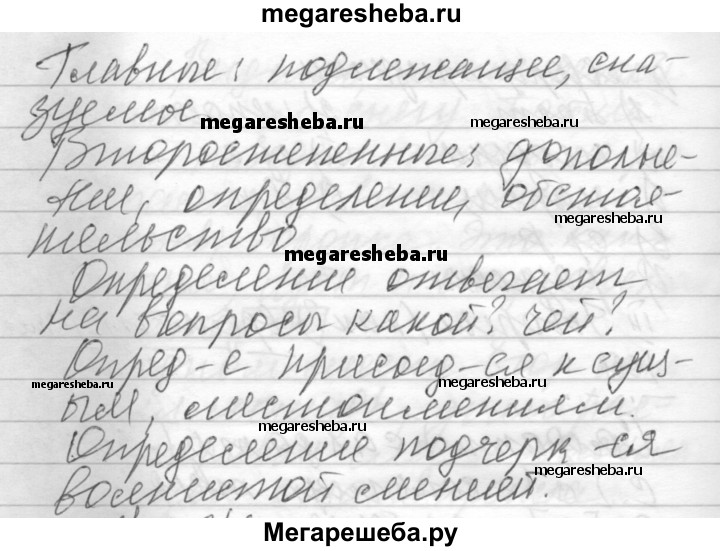 megaresheba.ru
Главные: подлежащее, ска-
зуемое
megaresheba.ru
megaresheba.ru
Второстепенные: дополне-
ния, определении, обстоя-
megaresheba.ru
тельство
megaresheba.ru
Определение отвечает
на вопросы какой? чей?
Опред-е присоед-ся к сущ-
megaresheba.ru
megaresheba.ru
ым, местоимениям.
megaresheba.ru
Определение подчерк-ся
megaresheba.ru
волнистой линией.
Мегарешеба.ру